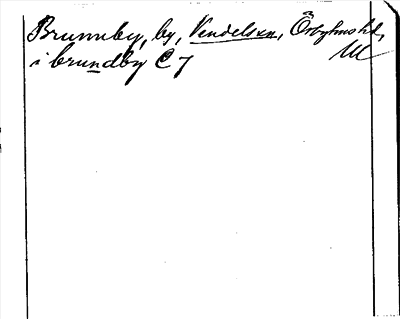 Brunnby, by, Vendels sn, Örbyhus hd,
i brundby C 7